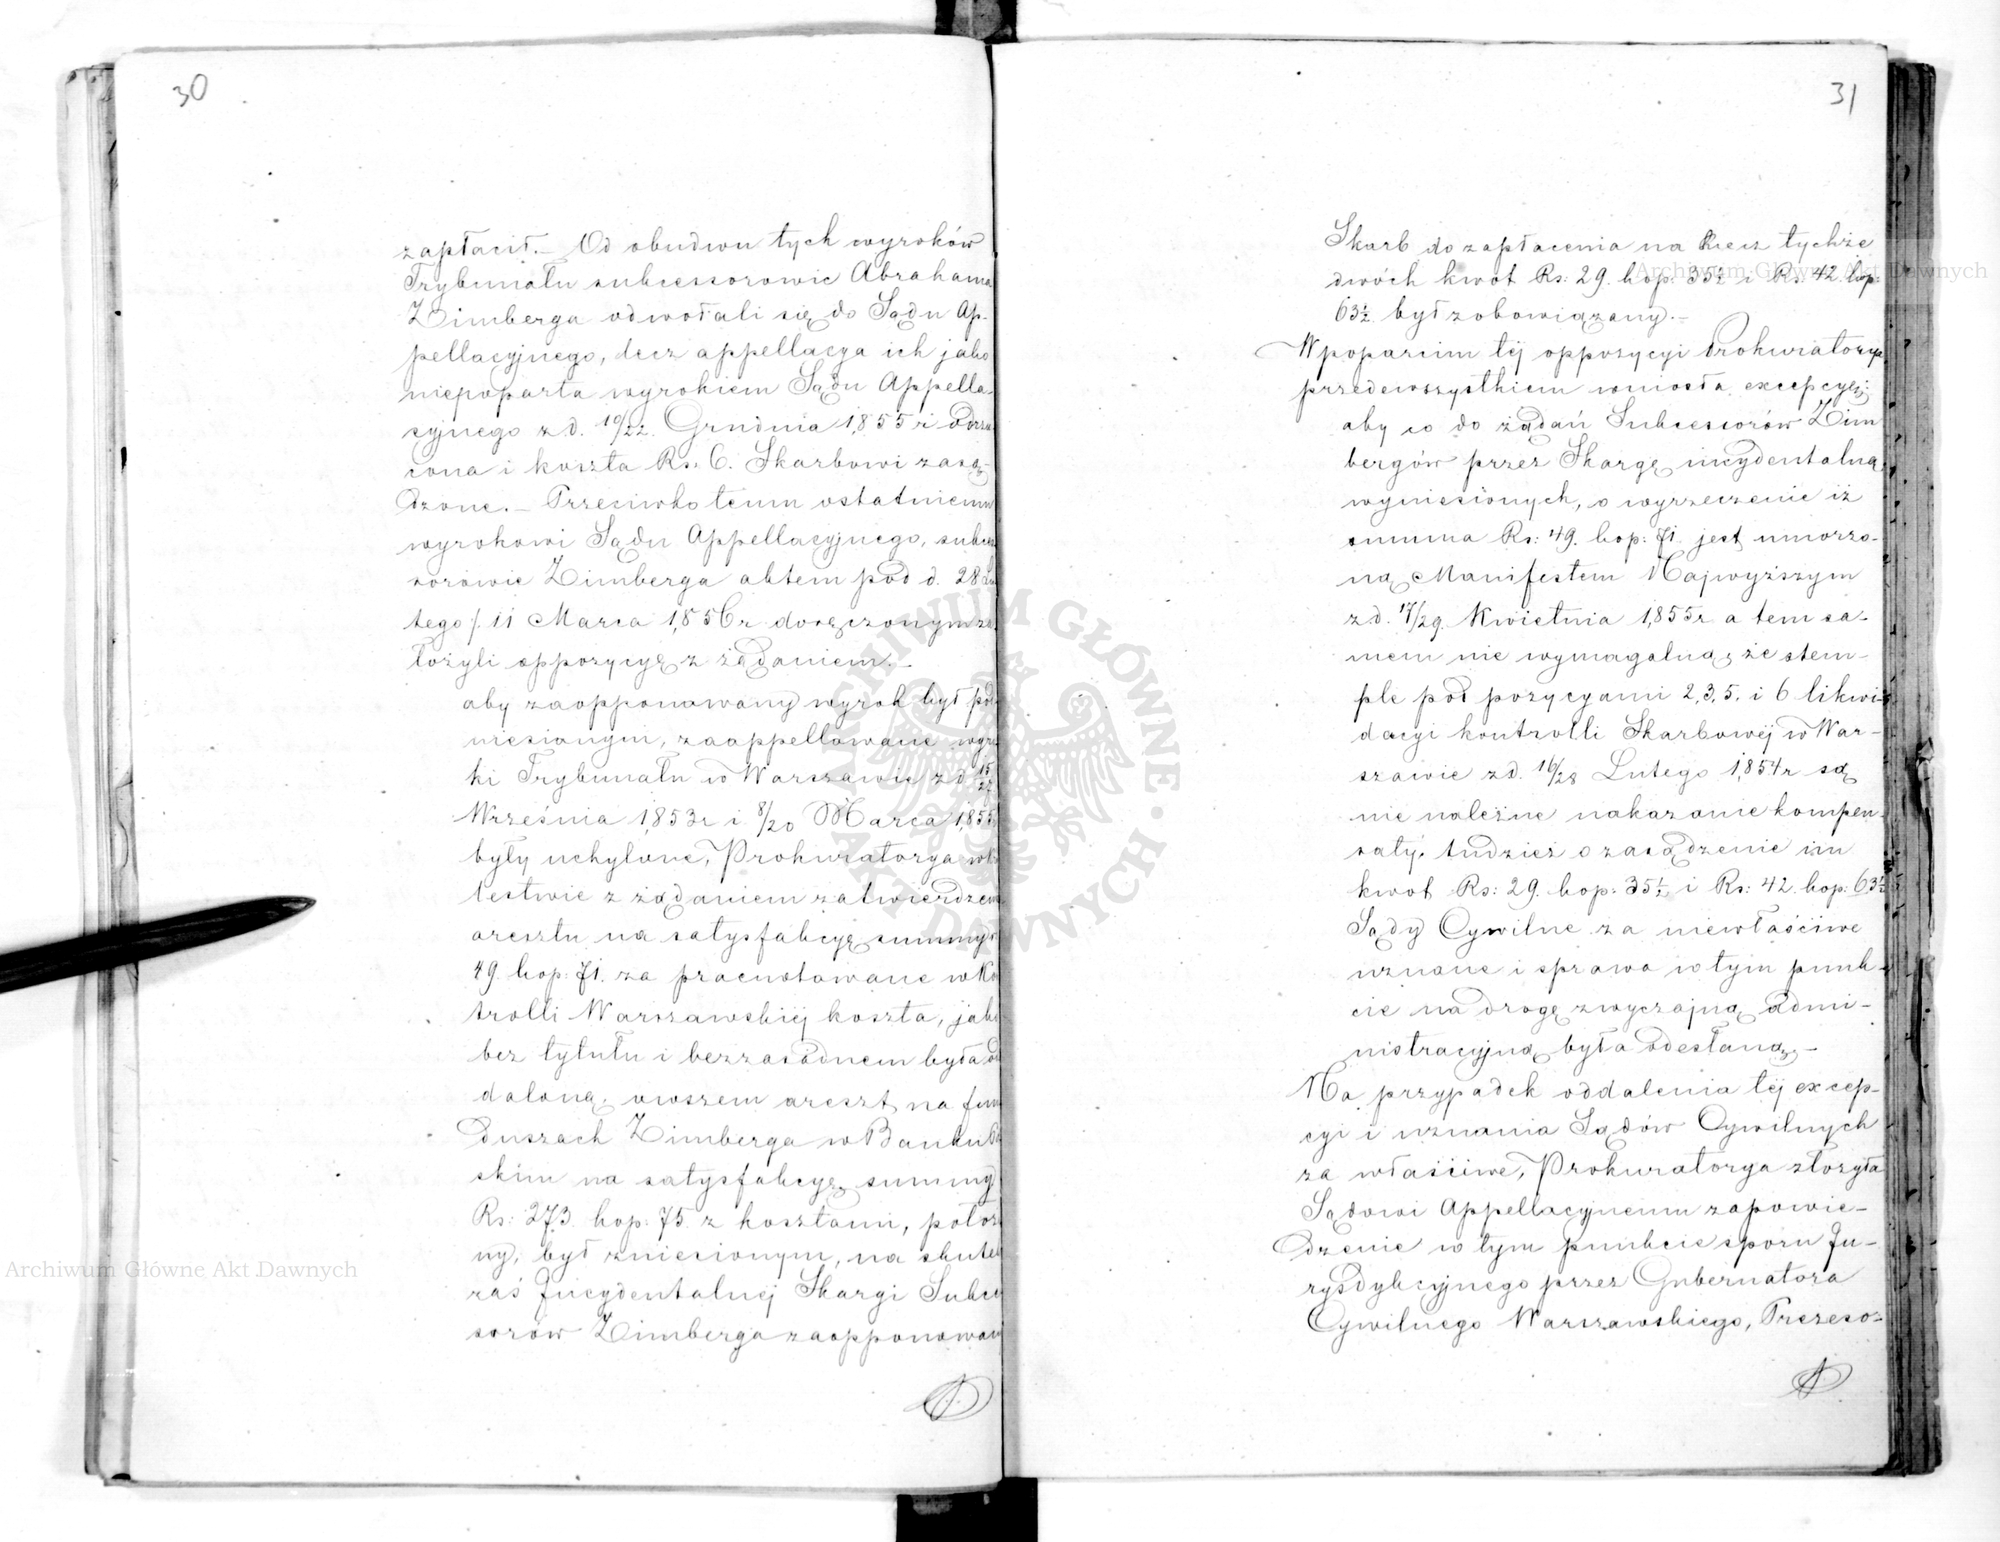 30
zapłacił. — Od obudwu tych wyroków
Trybunału sukcessorowie Abrahama
Zimberga odwołali się do Sądu Ap-
pellacyjnego, lecz appellacya ich jako
niepoparta wyrokiem Sądu Appella-
cyjnego z d. 10/22. Grudnia 1855 r odrzu
cona i koszta Rs: 6. Skarbowi zasą-
dzone. — Przeciwko temu ostatniemu
wyrokowi Sądu Appellacyjnego, sukces
sorowie Zimberga aktem pod d. 28 Lu
tego /. 11 Marca 1856 r doręczonym za
łożyli oppozycyę z żądaniem. —
aby zaopponowany wyrok był pod
niesionym, zaappellowane wyro
ki Trybunału w Warszawie z d 15/27
Września 1853 r i 8/20 Marca 1855
były uchylone, Prokuratorya
testwie z żądaniem zatwierdzen
aresztu na satysfakcyę summy
49. kop: 71. za pracnotowane w Ko
trolli Warszawskiéj koszta, jako
bez tytułu i bezzasadnem była od
daloną, owszem areszt na fun
duszach Zimberga w Banku Po
skim na satysfakcyę summy
Rs: 273. kop: 75. z kosztami, położo
ny, był zniesionym, na skutek
zaś Incydentalnéj Skargi Sukces
sorów Zimberga zaopponowan
31
Skarb do zapłacenia na Rzecz tychże
dwóch kwot Rs: 29. kop: 35½ i Rs: 42. kop:
63½. był zobowiązany. —
W poparciu téj oppozycyi Prokuratorya
przedewszystkiem wniosła excepcyę:
aby co do żądań Sukcessorów Zim
bergów przez Skargę incydentalną
wyniesionych, o wyrzeczenie iż
summa Rs: 49. kop: 71. jest umorzo-
ną Manifestem Najwyższym
z d. 17/29. Kwietnia 1855 r a tem sa-
mem nie wymagalną, że stem-
ple pod pozycyami 2, 3, 5. i 6 likwi-
dacyi kontrolli Skarbowéj w War-
szawie z d. 16/28 Lutego 1854 r są
nie należne nakazanie kompen-
saty, tudzież o zasądzenie im
kwot Rs: 29. kop: 35½ i Rs: 42. kop: 63½
Sądy Cywilne za niewłaściwe
uznane i sprawa w tym punk-
cie na drogę zwyczajną admi-
nistracyjną była odesłaną. —
Na przypadek oddalenia téj excep-
cyi i uznania Sądów Cywilnych
za właściwe, Prokuratorya złożyła
Sądowi Appellacyjnemu zapowie-
dzenie w tym punkcie sporu Ju-
rysdykcyjnego przez Gubernatora
Cywilnego Warszawskiego, Prezeso-
Archiwum Główne Akt Dawnych
Archiwum Główne Akt Dawnych
ARCHIWUM GŁÓWNE AKT DAWNYCH